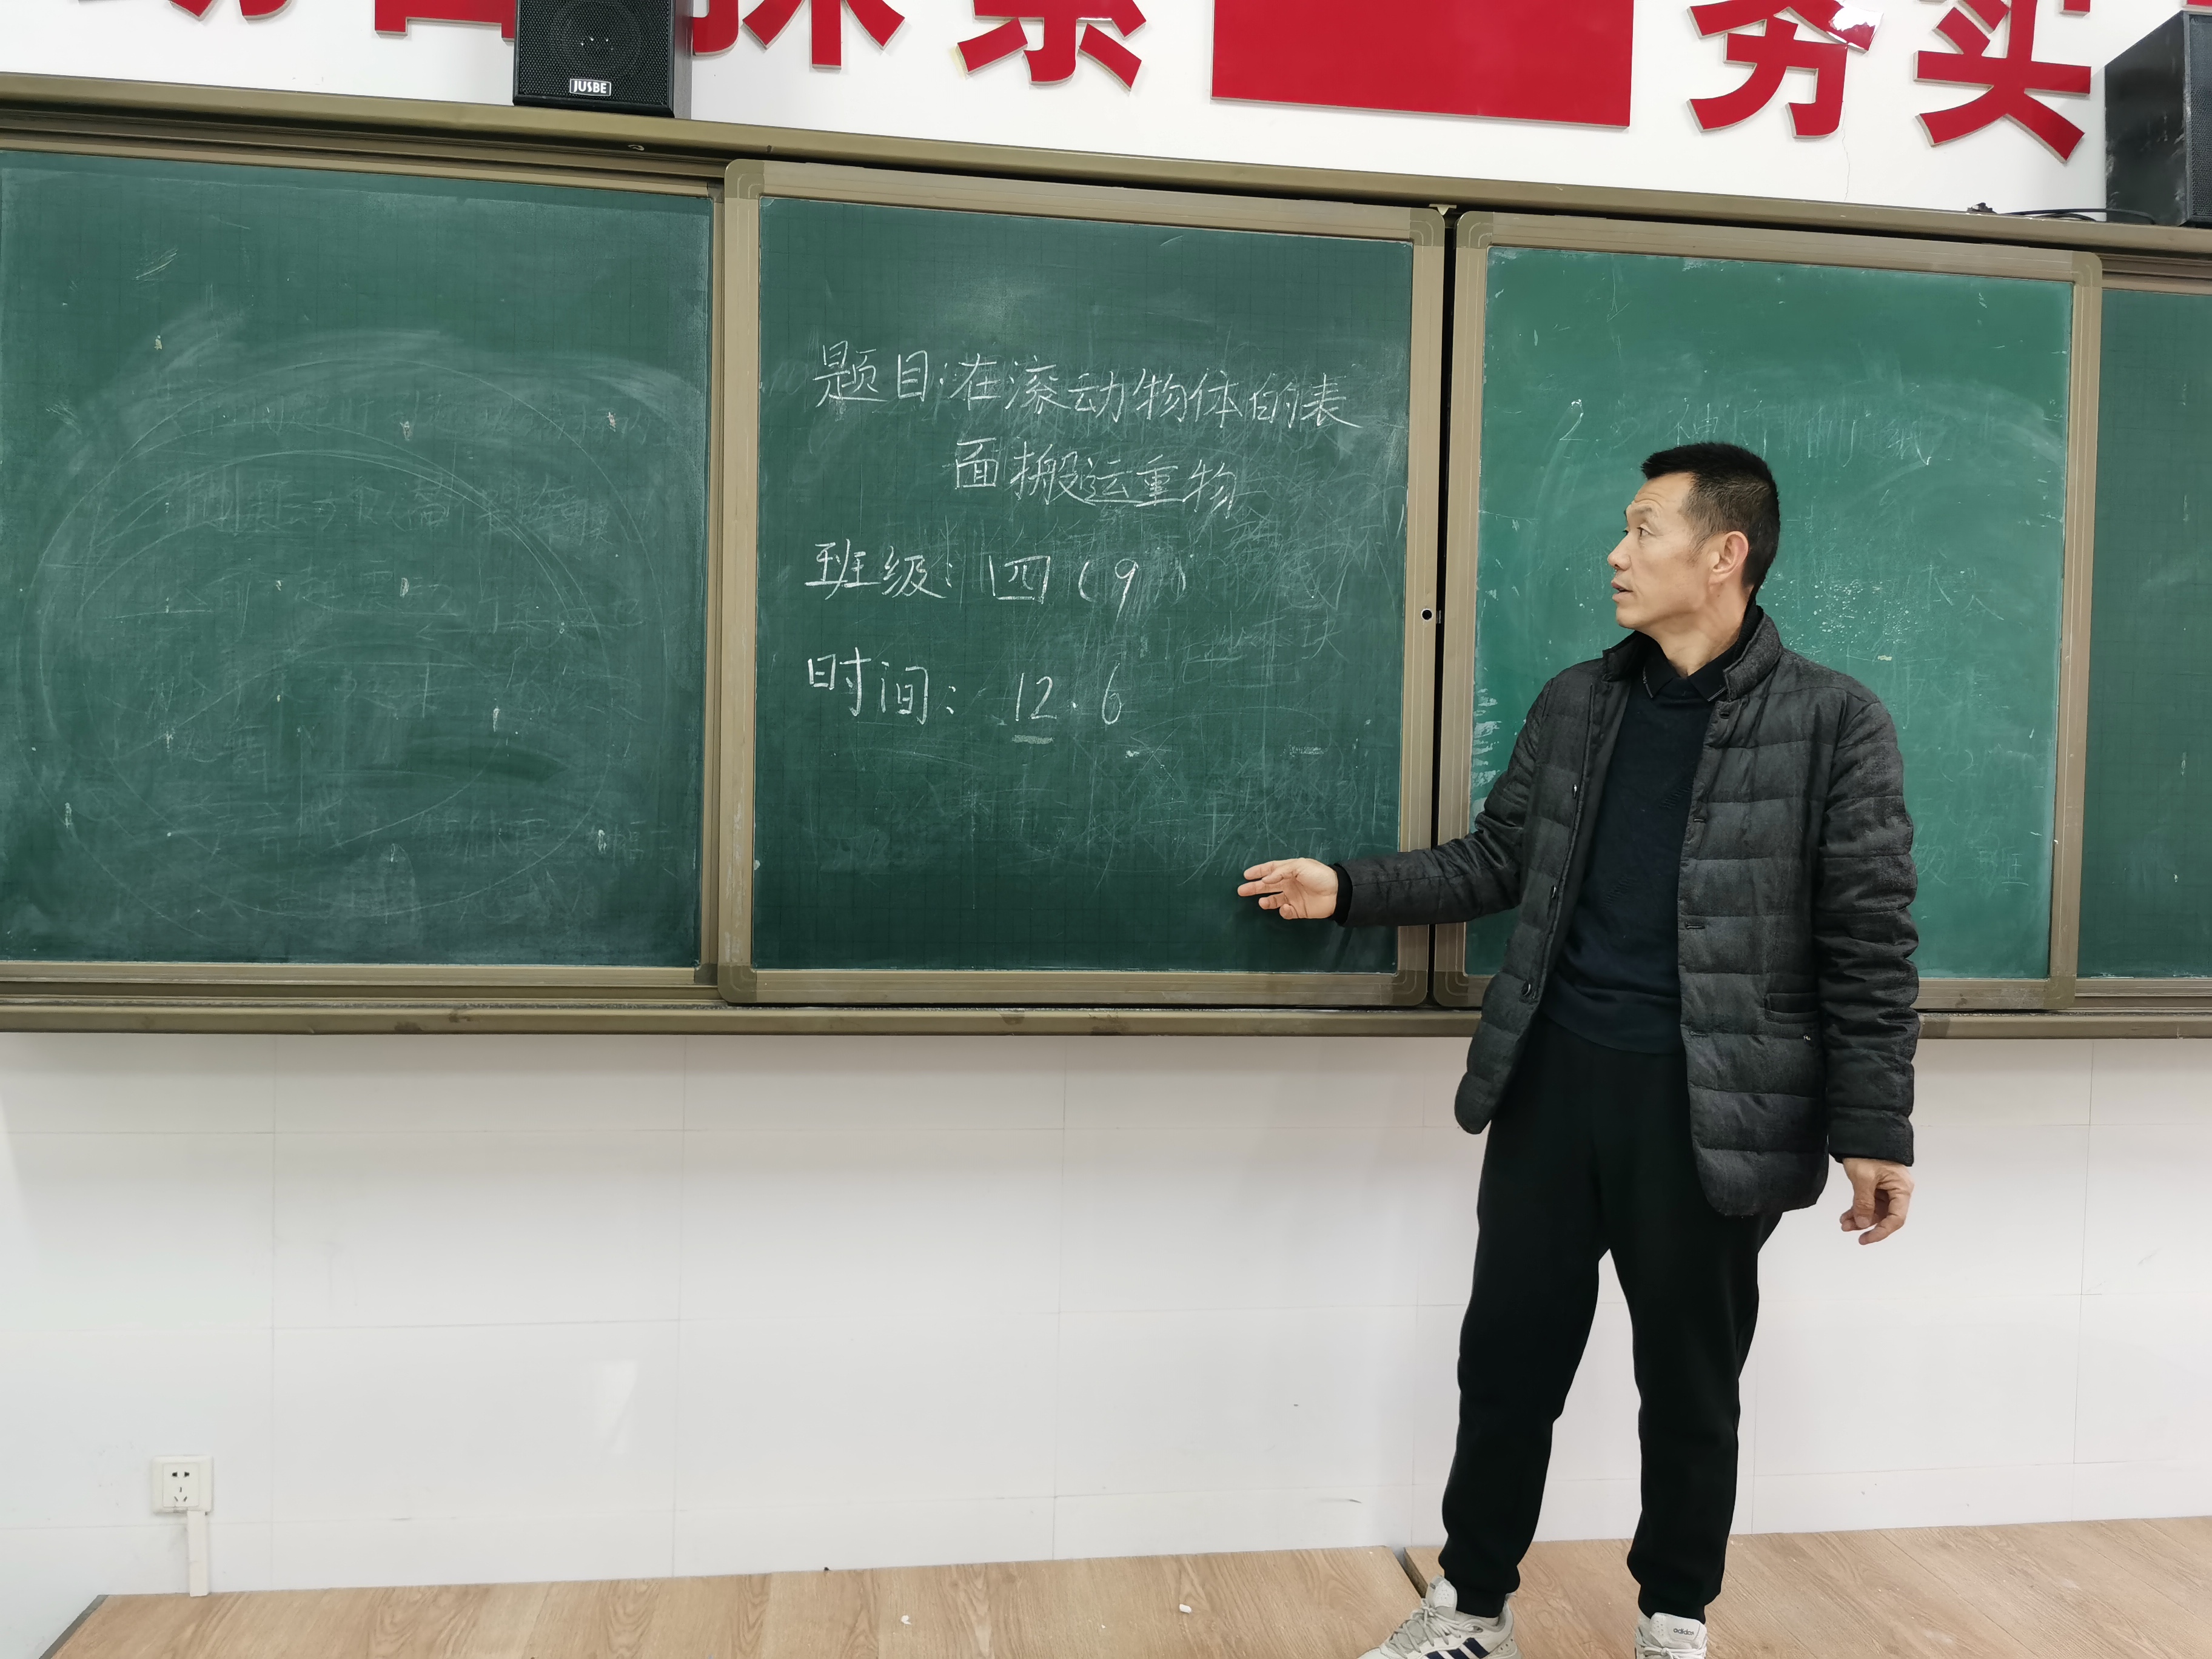 探索
务实
JUSBE
题目:在滚动物体的表
面搬运重物
班级: 四(9)
时间: 12.6
adidas